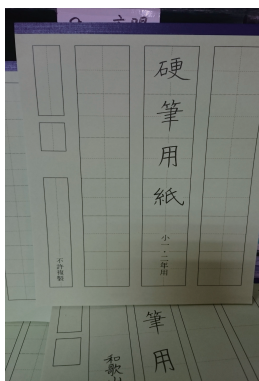 硬筆用紙
小一・二年用
不許複製
筆用
和歌